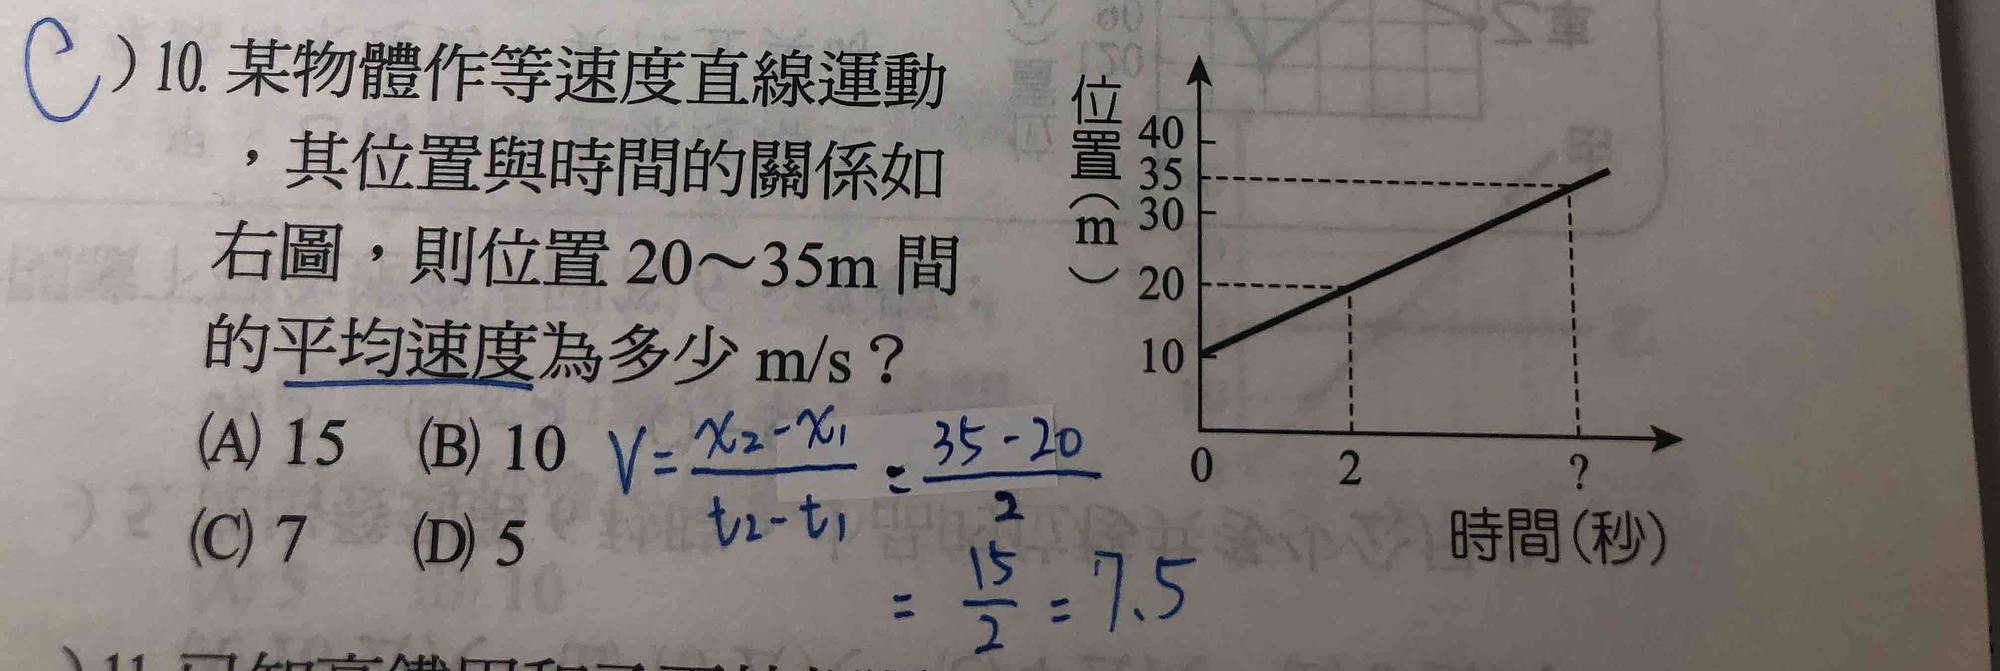 C ) 10. 某物體作等速度直線運動
，其位置與時間的關係如
右圖，則位置 20～35m 間
的平均速度為多少 m/s？
(A) 15 (B) 10
(C) 7 (D) 5
V = x₂-x₁ / t₂-t₁ = 35-20 / 2
= 15 / 2 = 7.5
位置(m)
40
35
30
20
10
0 2 ?
時間(秒)